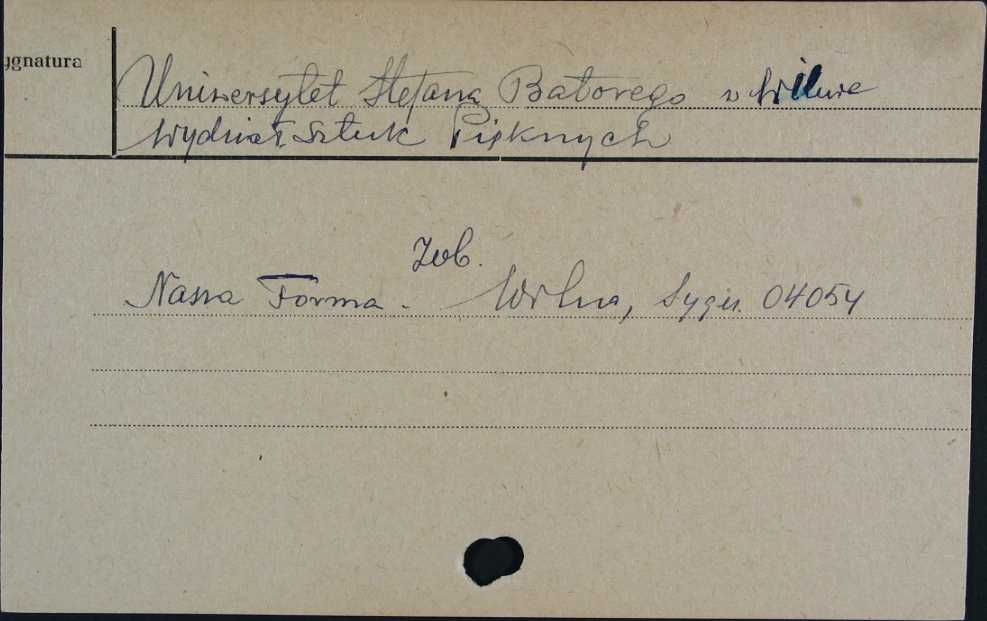 ygnatura
Uniwersytet Stefana Batorego w Wilnie
Wydział Sztuk Pięknych
Zob.
Nasza Forma. Wilno, Sygn. 04054